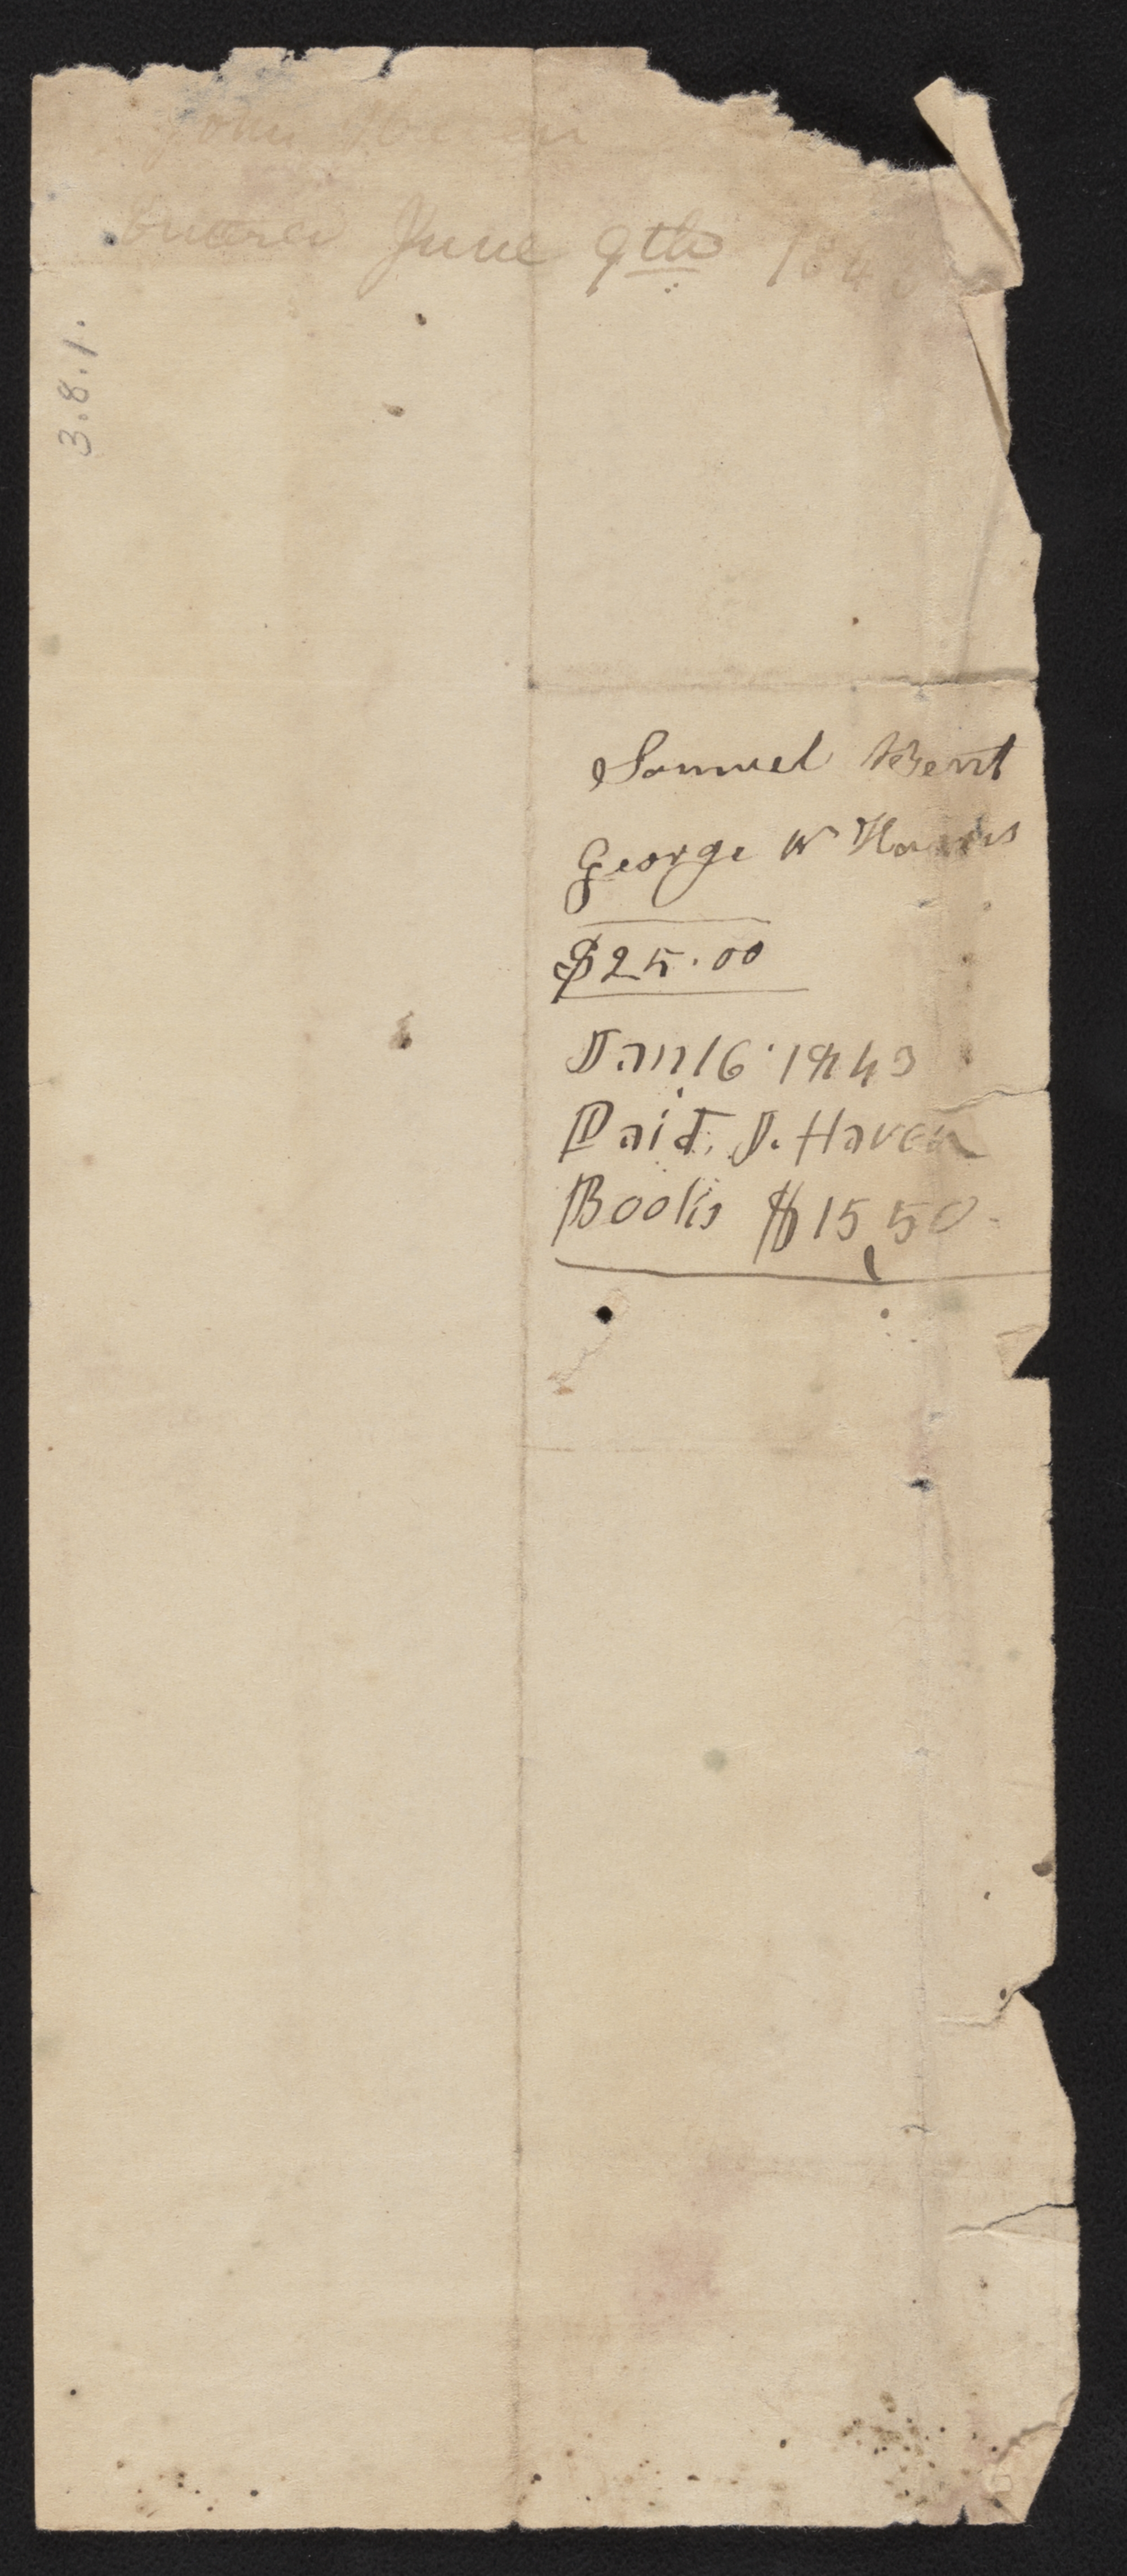 John Haven
June 9th 184
3.8.1.
Samuel Bent
George W Harris
$25.00
Jan 16 1843
Paid, J. Haven
Books $15,50